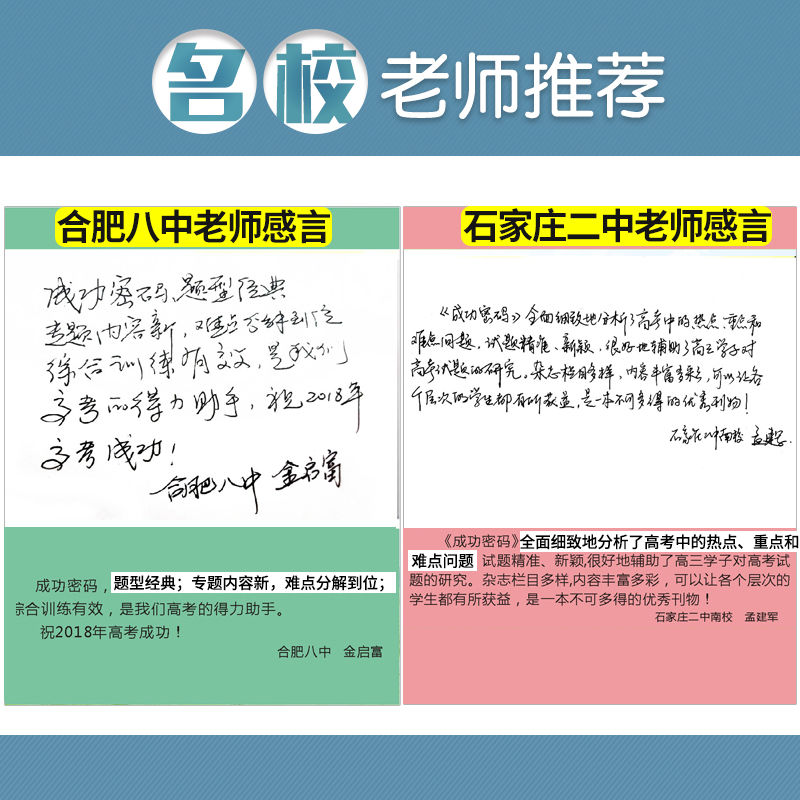 名校老师推荐
合肥八中老师感言
成功密码，题型经典
专题内容新，难点分解到位
综合训练有效，是我们
高考的得力助手，祝2018年
高考成功！
合肥八中 金启富
成功密码，题型经典；专题内容新，难点分解到位；
综合训练有效，是我们高考的得力助手。
祝2018年高考成功！
合肥八中 金启富
石家庄二中老师感言
《成功密码》全面细致地分析了高考中的热点、重点和
难点问题，试题精准、新颖，很好地辅助了高三学子对
高考试题的研究。杂志栏目多样，内容丰富多彩，可以让各
个层次的学生都有所获益，是一本不可多得的优秀刊物！
石家庄二中南校 孟建军
《成功密码》全面细致地分析了高考中的热点、重点和
难点问题 试题精准、新颖,很好地辅助了高三学子对高考试
题的研究。杂志栏目多样,内容丰富多彩，可以让各个层次的
学生都有所获益，是一本不可多得的优秀刊物！
石家庄二中南校 孟建军